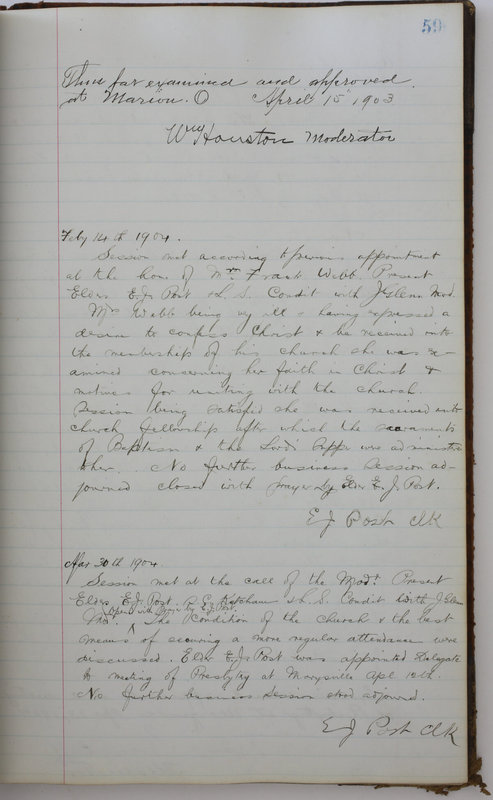 59
Thus far examined and approved.
at Marion. O April 15 1903
Wm Houston Moderator
Feby 14th 1904.
Session met according to previous appointment
at the hom of Mrs Frank Webb. Present
Elders E.J. Post & L. S. Condit with J Glenn Mod.
Mrs Webb being very ill & having expressed a
desire to confess Christ & be received into
the membership of his church she was ex-
amined concerning her faith in Christ &
motives for uniting with the church.
Session being satisfied she was received into
church fellowship after which the sacraments
of Baptism & the Lords Supper was administer
to her. No further business Session ad-
journed closed with prayer by Elder E. J. Post.
E J Post Clk
Mar 30th 1904.
Session met at the call of the Modt. Present
Elders E.J. Post, Ketcham & L. S. Condit with J Glenn
opened with prayer by E.J. Post.
Mod. The condition of the church & the best
means of securing a more regular attendance were
discussed. Elder E.J. Post was appointed Delegate
to meeting of Presbytry at Marysville Apl 12th.
No further business session stood adjourned.
E J Post Clk